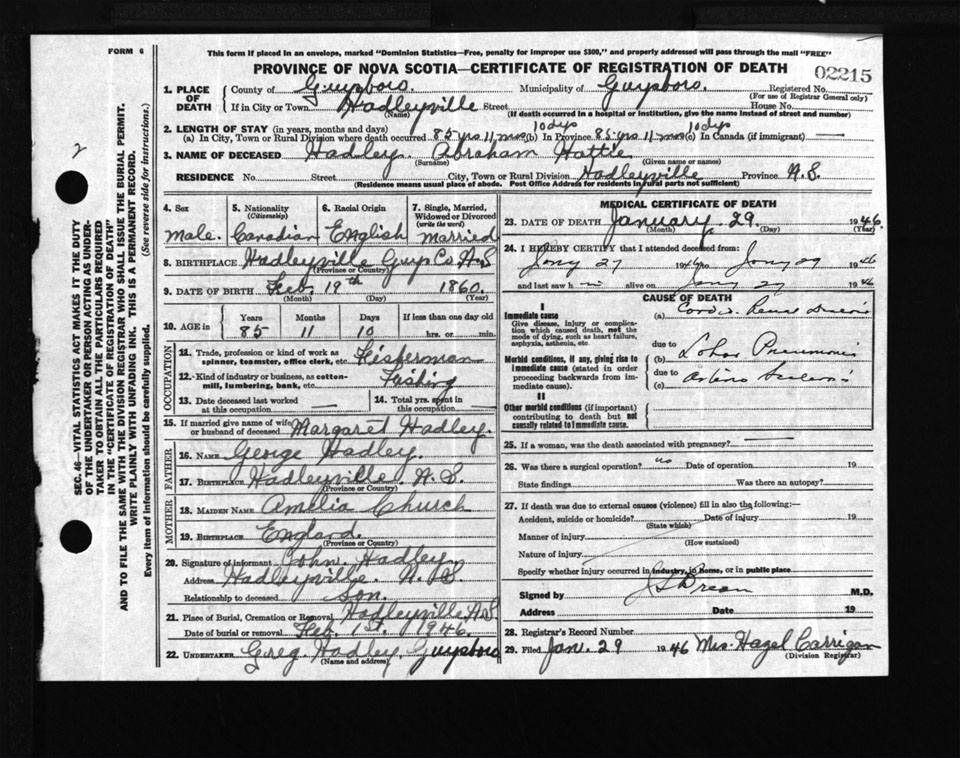 FORM 6
This form if placed in an envelope, marked "Dominion Statistics—Free, penalty for improper use $300," and properly addressed will pass through the mail "FREE"
PROVINCE OF NOVA SCOTIA—CERTIFICATE OF REGISTRATION OF DEATH
02215
1. PLACE OF DEATH County of Guysboro. Municipality of Guysboro. Registered No.
(For use of Registrar General only)
If in City or Town Hadleyville Street House No.
(Name) (If death occurred in a hospital or institution, give its name instead of street and number)
2. LENGTH OF STAY (in years, months and days)
(a) In City, Town or Rural Division where death occurred 85 yrs 11 mos 10 dys (b) In Province 85 yrs 11 mos 10 dys (c) In Canada (if immigrant) —
3. NAME OF DECEASED Hadley. Abraham Hattie
(Surname) (Given name or names)
RESIDENCE No. Street City, Town or Rural Division Hadleyville Province N.S.
(Residence means usual place of abode. Post Office Address for residents in rural parts not sufficient)
4. Sex Male.
5. Nationality (Citizenship) Canadian
6. Racial Origin English
7. Single, Married, Widowed or Divorced (write the word) Married
8. BIRTHPLACE Hadleyville Guys Co N.S
(Province or Country)
9. DATE OF BIRTH Feb. 19th 1860.
(Month) (Day) (Year)
10. AGE in Years 85 Months 11 Days 10 If less than one day old hrs. or min.
OCCUPATION
11. Trade, profession or kind of work as spinner, teamster, office clerk, etc. Fisherman
12. Kind of industry or business, as cotton-mill, lumbering, bank, etc. Fishing
13. Date deceased last worked at this occupation —
14. Total yrs. spent in this occupation
15. If married give name of wife or husband of deceased Margaret Hadley.
FATHER
16. NAME George Hadley.
17. BIRTHPLACE Hadleyville. N.S.
(Province or Country)
MOTHER
18. MAIDEN NAME Amelia Church
19. BIRTHPLACE England.
(Province or Country)
20. Signature of informant John Hadley
Address Hadleyville. N.S.
Relationship to deceased Son.
21. Place of Burial, Cremation or Removal Hadleyville N.S.
Date of burial or removal Feb. 1st. 1946.
22. UNDERTAKER Greg. Hadley. Guysboro
(Name and address)
MEDICAL CERTIFICATE OF DEATH
23. DATE OF DEATH January 29. 1946.
(Month) (Day) (Year)
24. I HEREBY CERTIFY that I attended deceased from:
Jany 27 1946 to Jany 29 1946
and last saw h m alive on Jany 27 1946
CAUSE OF DEATH
I
Immediate cause
Give disease, injury or complication which caused death, not the mode of dying, such as heart failure, asphyxia, asthenia, etc.
(a) Cardio. Renal Disease
Morbid conditions, if any, giving rise to immediate cause (stated in order proceeding backwards from immediate cause).
due to (b) Lobar Pneumonia
due to (c)
II
Other morbid conditions (if important) contributing to death but not causally related to immediate cause.
25. If a woman, was the death associated with pregnancy? —
26. Was there a surgical operation? no Date of operation 19
State findings Was there an autopsy?
27. If death was due to external causes (violence) fill in also the following:—
Accident, suicide or homicide? Date of injury 19
(State which)
Manner of injury
(How sustained)
Nature of injury
Specify whether injury occurred in industry, in home, or in public place
Signed by M.D.
Address Date 19
28. Registrar's Record Number
29. Filed Jan. 29 1946 Mrs. Hazel Carrigan
(Division Registrar)
SEC. 46—VITAL STATISTICS ACT MAKES IT THE DUTY
OF THE UNDERTAKER OR PERSON ACTING AS UNDERTAKER TO OBTAIN ALL THE PARTICULARS REQUIRED
IN THE "CERTIFICATE OF REGISTRATION OF DEATH"
AND TO FILE THE SAME WITH THE DIVISION REGISTRAR WHO SHALL ISSUE THE BURIAL PERMIT.
WRITE PLAINLY WITH UNFADING INK. THIS IS A PERMANENT RECORD.
Every item of information should be carefully supplied. (See reverse side for instructions.)
2